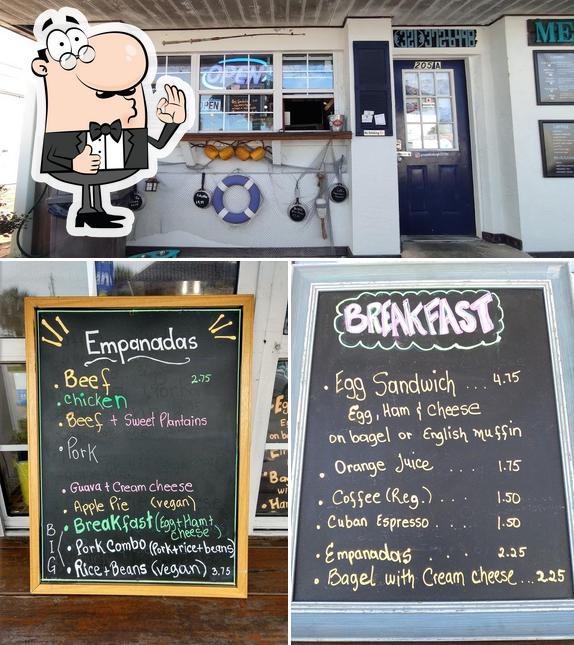 OPEN
OPEN
205A
ME
Empanadas
Beef 2.75
chicken
Beef + Sweet Plantains
Pork
Guava + Cream cheese
Apple Pie (vegan)
BIG
Breakfast (Egg + Ham + cheese)
Pork Combo (Pork + rice + beans)
Rice + Beans (vegan) 3.75
BREAKFAST
Egg Sandwich ... 4.75
Egg, Ham & Cheese
on bagel or English Muffin
Orange Juice .... 1.75
Coffee (Reg.) .... 1.50
Cuban Espresso .... 1.50
Empanadas .... 2.25
Bagel with Cream cheese ... 2.25